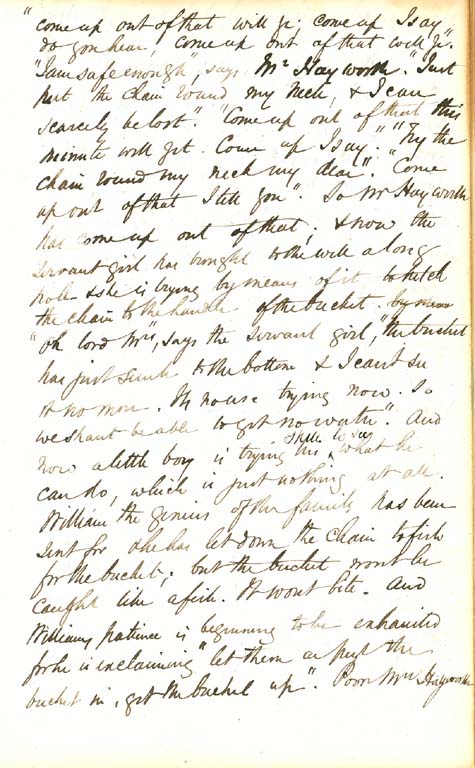 "come up out of that will yr, come up I say"
do you hear, come up out of that will yr."
"I am safe enough", says Mr Hayworth. "Just
put the chain round my neck, & I can
scarcely be lost". "Come up out of that this
minute will yr. Come up I say." "Tie the
chain round my neck my dear". "Come
up out of that I tell you". So Mr Hayworth
has come up out of that, & now the
servant girl has brought to the well a long
pole & she is trying by means of it to hitch
the chain to the handle of the bucket. by means
"Oh lord Mrs", says the servant girl, "the bucket
has just sunk to the bottom & I cant see
it no more. Its no use trying now. So
we shant be able to get no warter". And
now a little boy is trying his skill to see what he
can do, which is just nothing at all.
William the genius of the family has been
sent for & he has let down the chain to fish
for the bucket, but the bucket wont be
caught like a fish. It wont bite. And
Williams patience is beginning to be exhausted
for he is exclaiming "let them as put the
bucket in, get the bucket up". Poor Mrs Hayworth